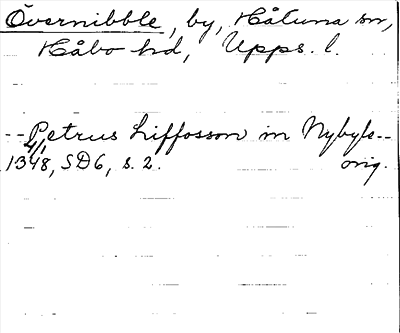 Övernibble, by, Håtuna sn,
Håbo hd, Upps. l.
-- Petrus Liffosson in Nybyle--
4/1
1348, SD6, s. 2. orig.